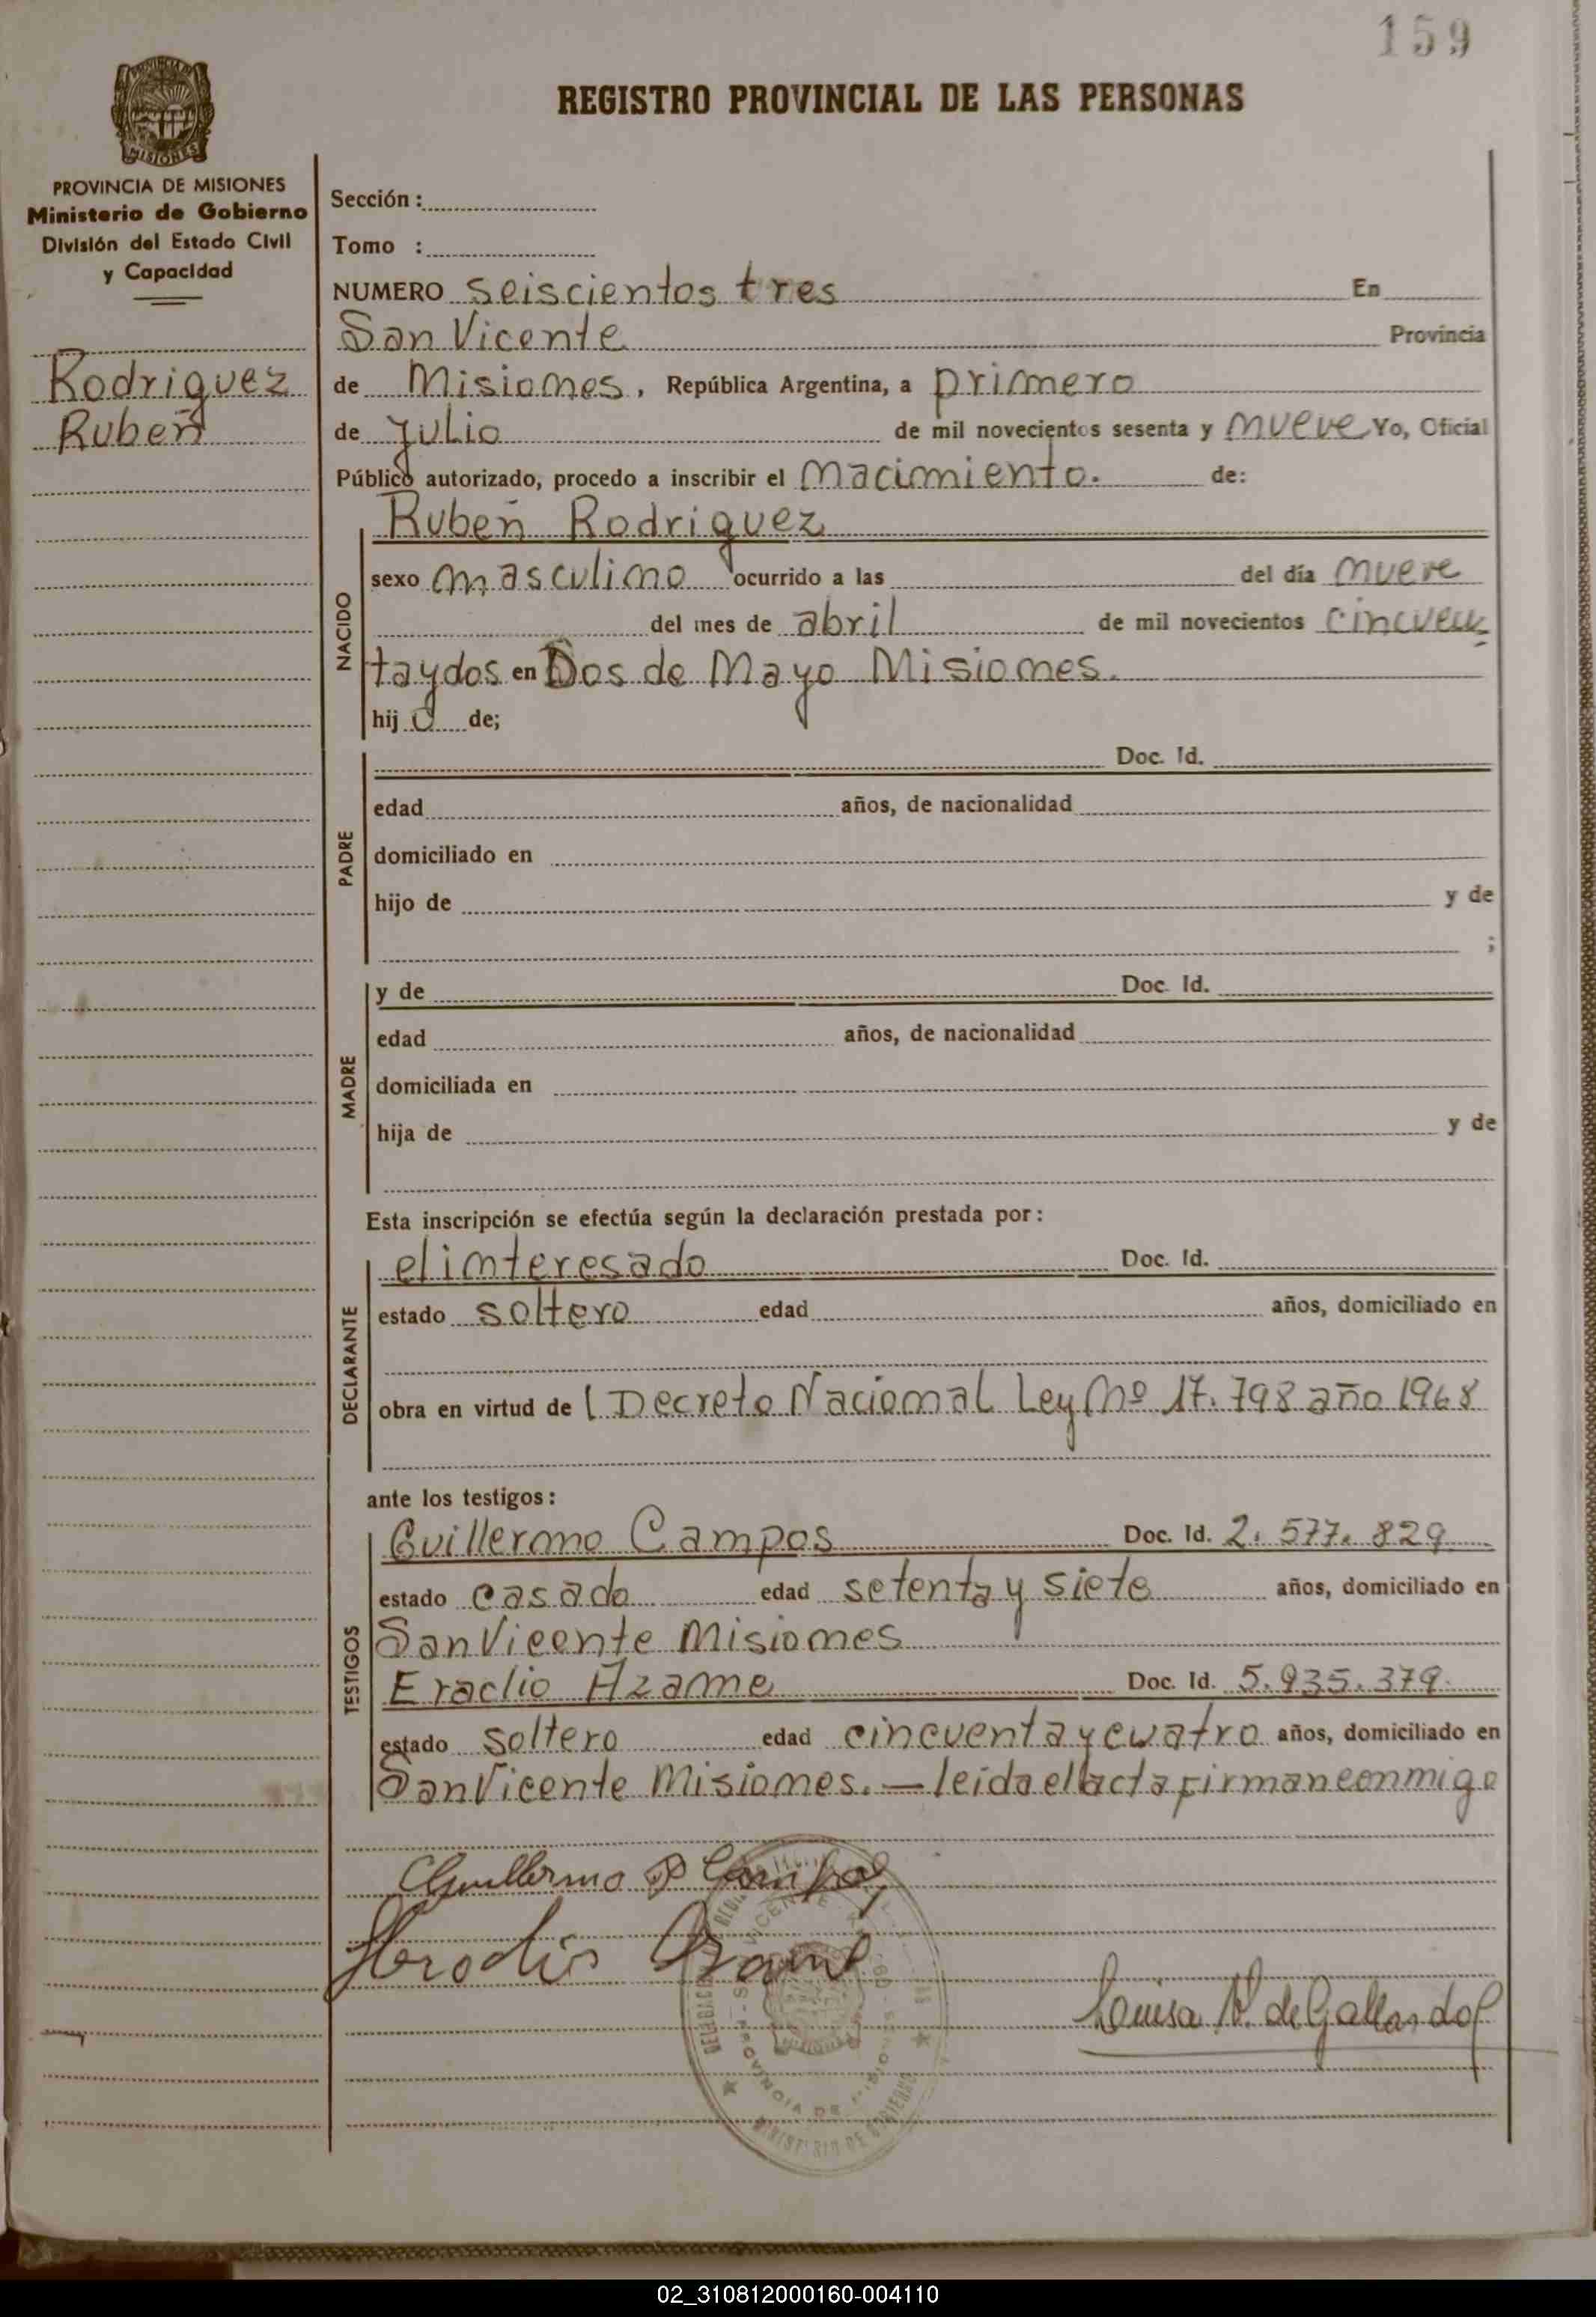 159
PROVINCIA DE
MISIONES
REGISTRO PROVINCIAL DE LAS PERSONAS
PROVINCIA DE MISIONES
Ministerio de Gobierno
División del Estado Civil
y Capacidad
Rodriguez
Ruben
Sección:
Tomo :
NUMERO seiscientos tres En
San Vicente Provincia
de Misiones, República Argentina, a primero
de Julio de mil novecientos sesenta y nueve Yo, Oficial
Público autorizado, procedo a inscribir el nacimiento. de:
Ruben Rodriguez
NACIDO
sexo masculino ocurrido a las del día nueve
del mes de abril de mil novecientos cincuen
taydos en Dos de Mayo Misiones.
hij o de;
PADRE
Doc. Id.
edad años, de nacionalidad
domiciliado en
hijo de y de
;
MADRE
y de Doc. Id.
edad años, de nacionalidad
domiciliada en
hija de y de
Esta inscripción se efectúa según la declaración prestada por:
DECLARANTE
el interesado Doc. Id.
estado soltero edad años, domiciliado en
obra en virtud de l Decreto Nacional Ley Nº 17.798 año 1968
ante los testigos:
TESTIGOS
Guillermo Campos Doc. Id. 2.577.829
estado casado edad setenta y siete años, domiciliado en
San Vicente Misiones
Eraclio Azame Doc. Id. 5.935.379.
estado soltero edad cincuenta y cuatro años, domiciliado en
San Vicente Misiones. — leida el acta firman conmigo
Guillermo Campos
Louisa N. de Gallardo
PROVINCIA DE MISIONES
MINISTERIO DE GOBIERNO
02_310812000160-004110